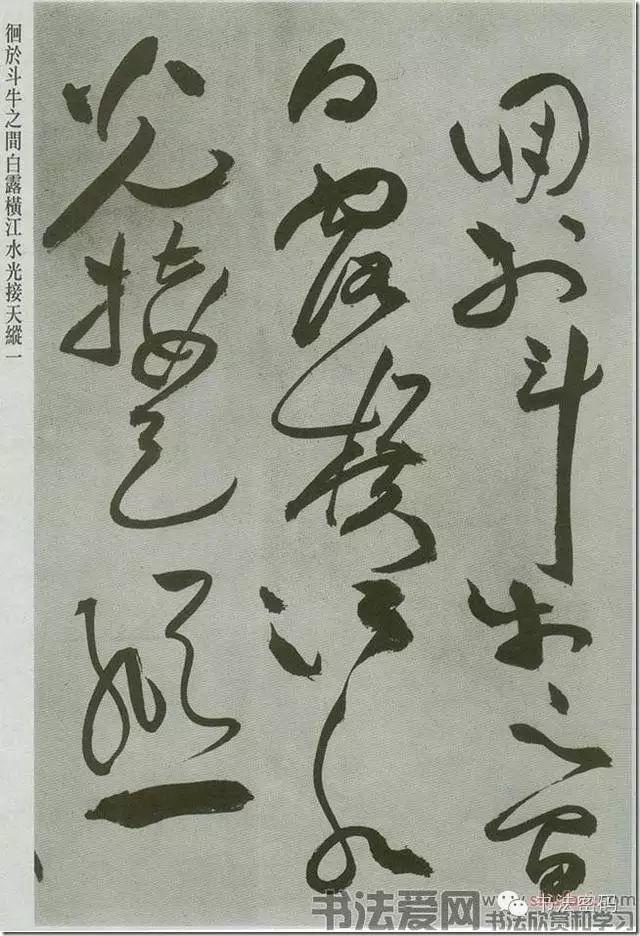 徊於斗牛之間
白露橫江水
光接天縱一
徊於斗牛之間白露橫江水光接天縱一
书法爱网
书法密码
书法欣赏和学习